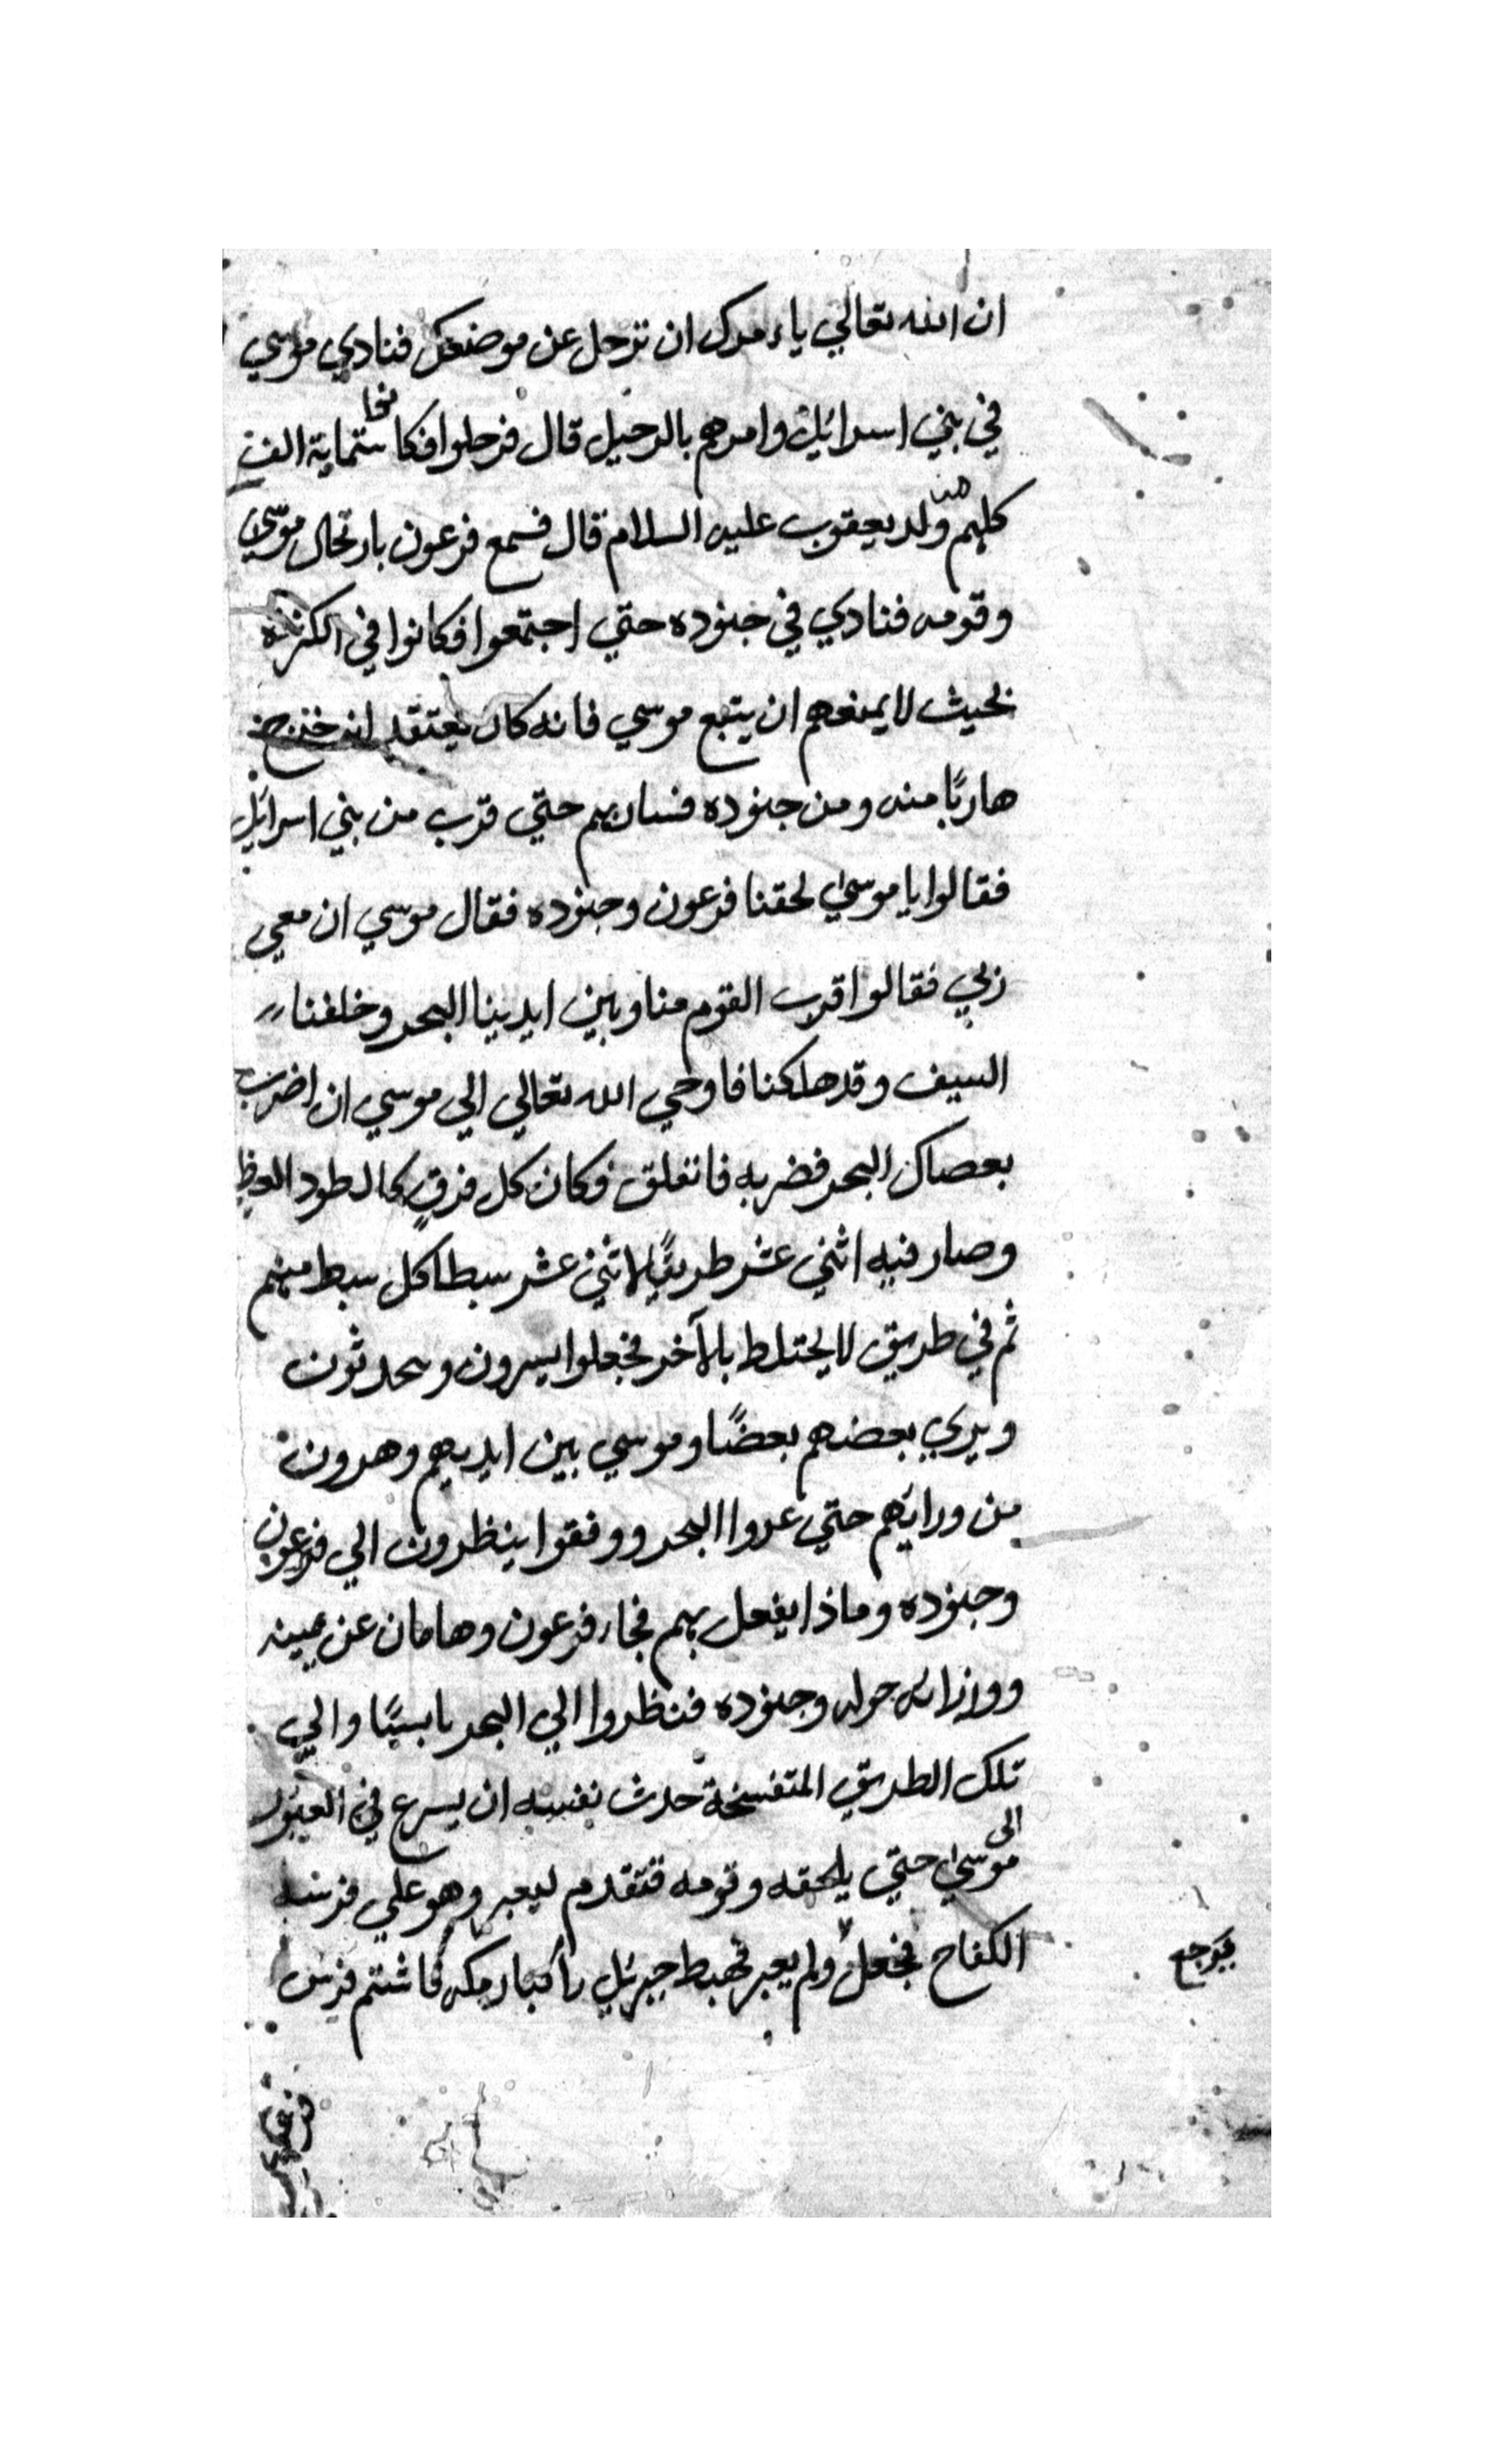 ان الله تعالي ياءمرك ان ترحل عن موضعك فنادي موسي
في بني اسرائيل وامرهم بالرحيل قال فرحلوا فكانوا ستماية الف
كلهم من ولد يعقوب عليه السلام قال فسمع فرعون بارتحال موسي
وقومه فنادي في جنوده حتي اجتمعوا فكانوا في الكثرة
بحيث لا يمنعهم ان يتبع موسي فانه كان يعتقد انه خرج
هاربًا منه ومن جنوده فسار بهم حتي قرب من بني اسرائيل
فقالوا يا موسي لحقنا فرعون وجنوده فقال موسي ان معي
ربي فقالوا اقرب القوم منا وبين ايدينا البحر وخلفنا
السيف وقد هلكنا فاوحي الله تعالي الي موسي ان اضرب
بعصاك البحر فضربه فانفلق فكان كل فرقٍ كالطود العظ
وصار فيه اثني عشر طريقًا لاثني عشر سبطا كل سبط منهم
ثم في طريق لا يختلط بالآخر فجعلوا يسيرون ويحدثون
ويري بعضهم بعضًا وموسي بين ايديهم وهرون
من ورايهم حتي عدوا البحر ووقفوا ينظرون الي فرعون
وجنوده وماذا يفعل بهم فجاء فرعون وهامان عن يمينه
ووزرائه حوله وجنوده فنظروا الي البحر يابسًا والي
تلك الطريق المتفسخة حدث نفسه ان يسرع في العبور
الى موسي حتي يلحقه وقومه فتقدم ليعبر وهو علي فرسه
الكفاح فجعل ولم يعبر فهبط جبريل راكبا رمكه فاشتم فرس
يرجع
فرعون